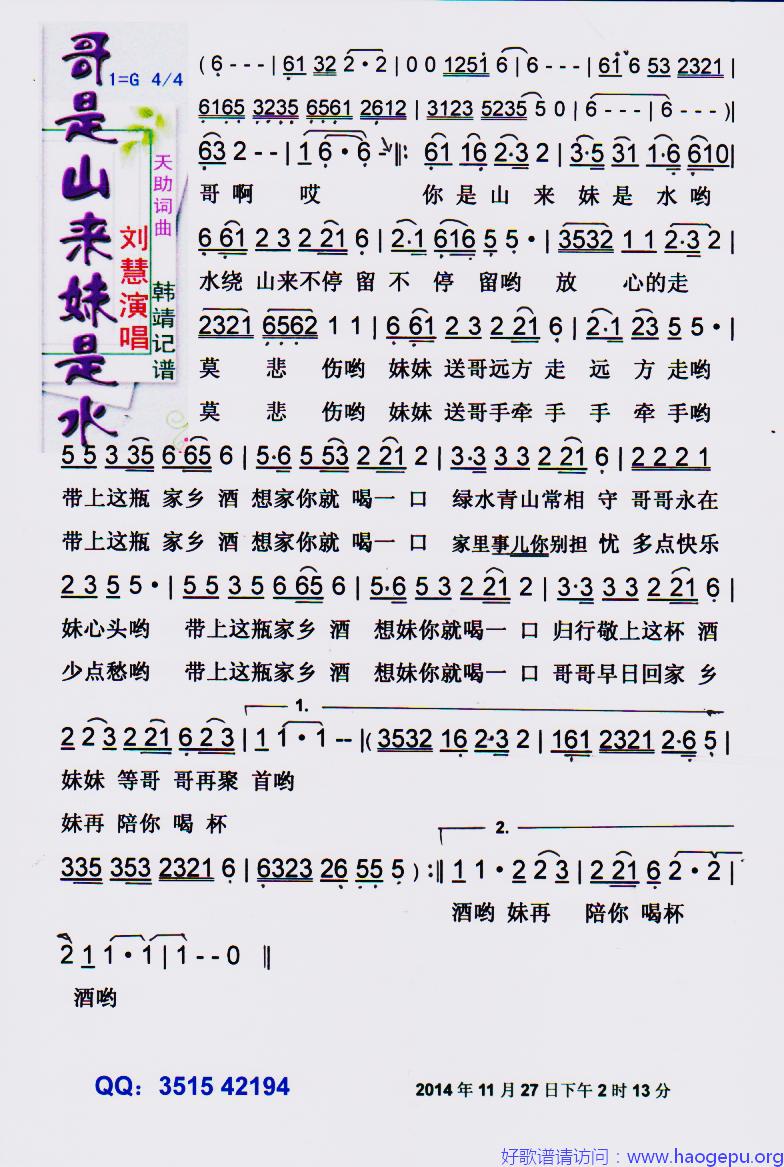 哥是山来妹是水
1=G 4/4
天助词曲
刘慧演唱
韩靖记谱
(6 - - - | 61 32 2·2 | 0 0 1251 6 | 6 - - - | 61 6 53 2321 |
6165 3235 6561 2612 | 3123 5235 5 0 | 6 - - - | 6 - - -)|
63 2 - - | 1 6·6 - ‖: 61 16 2·3 2 | 3·5 31 1·6 610 |
哥啊 哎 你是山来妹是水哟
6 61 2 3 2 221 6 | 2·1 616 5 5· | 3532 1 1 2·3 2 |
水绕 山来不停 留 不 停 留哟 放 心的走
2321 6562 1 1 | 6 61 2 3 2 221 6 | 2·1 23 5 5· |
莫 悲 伤哟 妹妹 送哥远方 走 远 方 走哟
莫 悲 伤哟 妹妹 送哥手牵 手 手 牵 手哟
5 5 3 35 6 65 6 | 5·6 5 53 2 221 2 | 3·3 3 3 2 221 6 | 2 2 2 1
带上这瓶 家乡 酒 想家你就 喝一 口 绿水青山常相 守 哥哥永在
带上这瓶 家乡 酒 想家你就 喝一 口 家里事儿你别担 忧 多点快乐
2 3 5 5· | 5 5 3 5 6 65 6 | 5·6 5 3 2 221 2 | 3·3 3 3 2 221 6 |
妹心头哟 带上这瓶家乡 酒 想妹你就喝一 口 归行敬上这杯 酒
少点愁哟 带上这瓶家乡 酒 想妹你就喝一 口 哥哥早日回家 乡
1.
2 2 3 2 21 6 2 3 | 1 1·1 - - |( 3532 16 2·3 2 | 161 2321 2·6 5 |
妹妹 等哥 哥再聚 首哟
妹再 陪你 喝 杯
2.
335 353 2321 6 | 6323 26 55 5 ) :‖ 1 1· 2 2 3 | 2 21 6 2·2 |
酒哟 妹再 陪你 喝杯
2 1 1·1 | 1 - - 0 ‖
酒哟
QQ: 3515 42194
2014 年 11 月 27 日下午 2 时 13 分
好歌谱请访问：www.haogepu.org